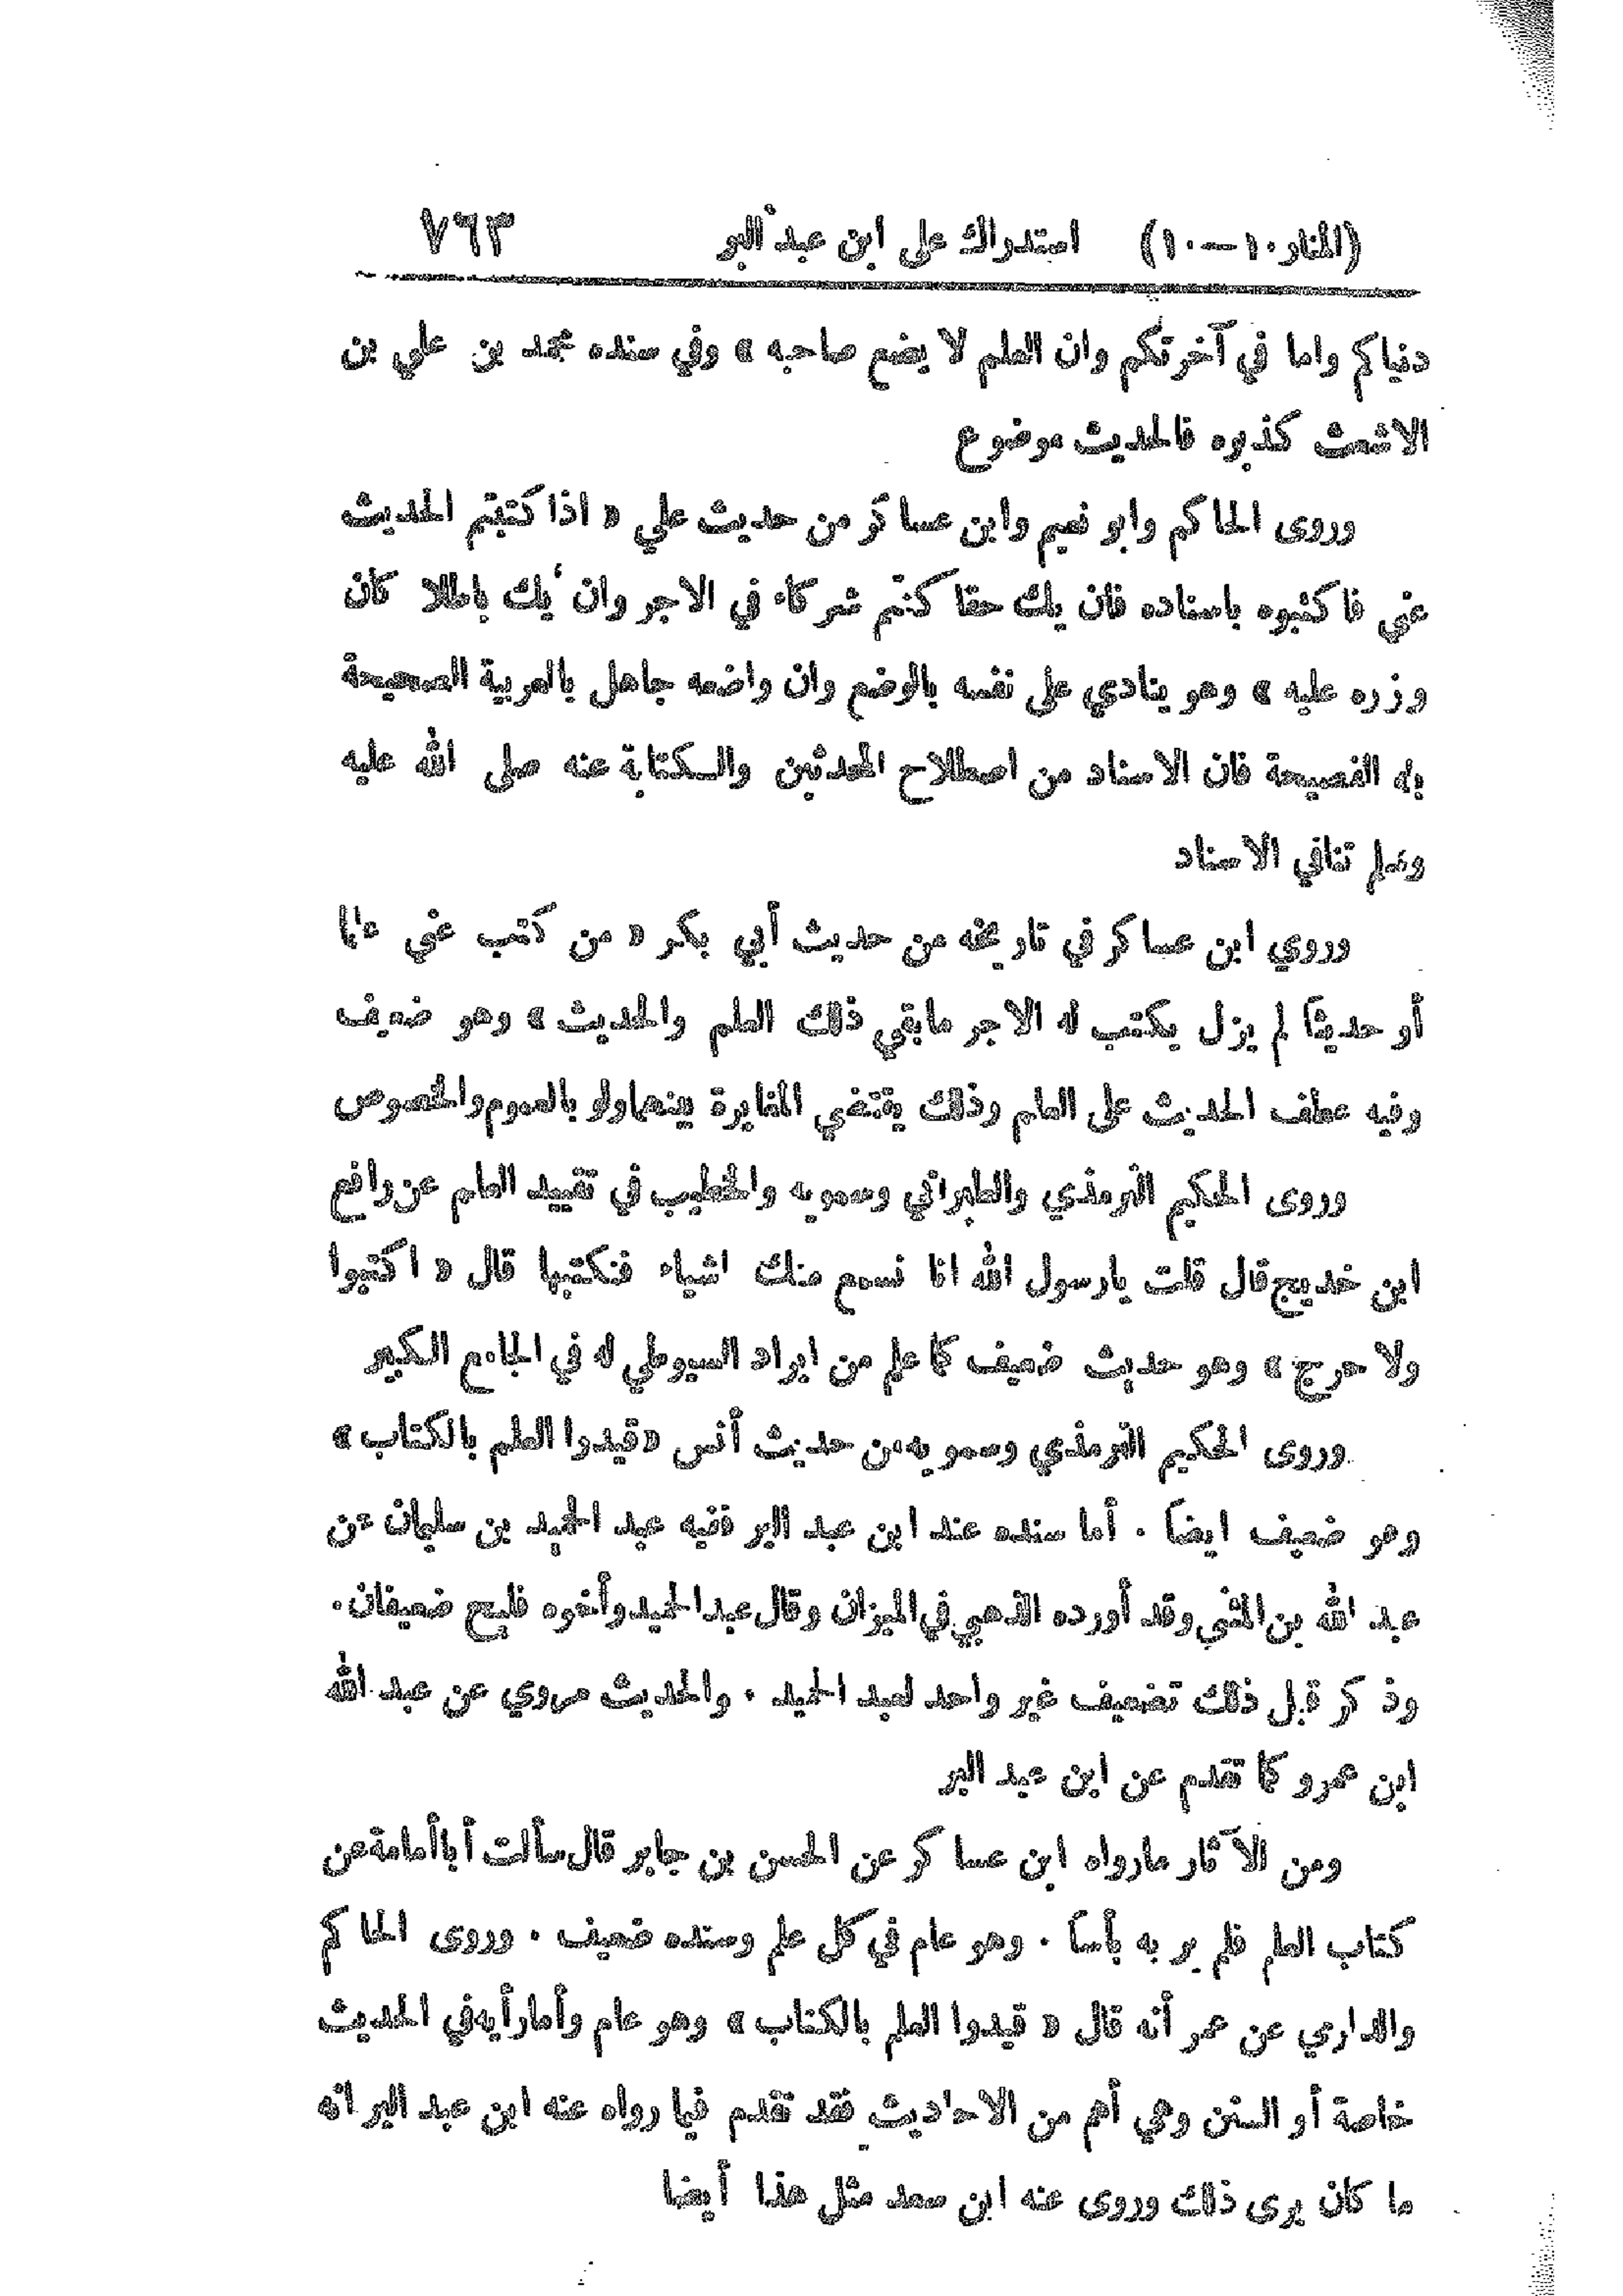 (المنار ١٠ـ١٠) استدراك على ابن عبد البر ٧٦٣
دنياكم واما في آخرتكم وان العلم لا يضع صاحبه» وفي سنده محمد بن علي بن
الاشعث كذبوه فالحديث موضوع
وروى الحاكم وابو نعيم وابن عساكر من حديث علي «اذا كتبتم الحديث
عني فاكتبوه باسناده فان يك حقا كنتم شركاء في الاجر وان يك باطلا كان
وزره عليه» وهو ينادي على نفسه بالوضع وان واضعه جاهل بالعربية الصحيحة
بله الفصيحة فان الاسناد من اصطلاح المحدثين والكتابة عنه صلى الله عليه
وسلم تنافي الاسناد
وروي ابن عساكر في تاريخه من حديث أبي بكر «من كتب عني علما
أو حديثاً لم يزل يكتب له الاجر مابقي ذلك العلم والحديث» وهو ضعيف
وفيه عطف الحديث على العلم وذلك يقتضي المغايرة بينهما ولو بالعموم والخصوص
وروى الحكيم الترمذي والطبراني وسمويه والخطيب في تقييد العلم عن رافع
ابن خديج قال قلت يارسول الله انا نسمع منك اشياء فنكتبها قال «اكتبوا
ولا حرج» وهو حديث ضعيف كما علم من ايراد السيوطي له في الجامع الكبير
وروى الحكيم الترمذي وسمويه من حديث أنس «قيدوا العلم بالكتاب»
وهو ضعيف ايضاً . أما سنده عند ابن عبد البر ففيه عبد الحميد بن سليمان عن
عبد الله بن المثنى وقد أورده الذهبي في الميزان وقال عبد الحميد وأخوه فليح ضعيفان .
وذكر قبل ذلك تضعيف غير واحد لعبد الحميد . والحديث مروي عن عبد الله
ابن عمرو كما تقدم عن ابن عبد البر
ومن الآثار مارواه ابن عساكر عن الحسن بن جابر قال سألت أبا أمامة عن
كتاب العلم فلم ير به بأساً . وهو عام في كل علم وسنده ضعيف . وروى الحاكم
والدارمي عن عمر أنه قال «قيدوا العلم بالكتاب» وهو عام وأما رأيه في الحديث
خاصة أو السنن وهي أهم من الاحاديث فقد تقدم فيما رواه عنه ابن عبد البر انه
ما كان يرى ذلك وروى عنه ابن سعد مثل هذا أيضا